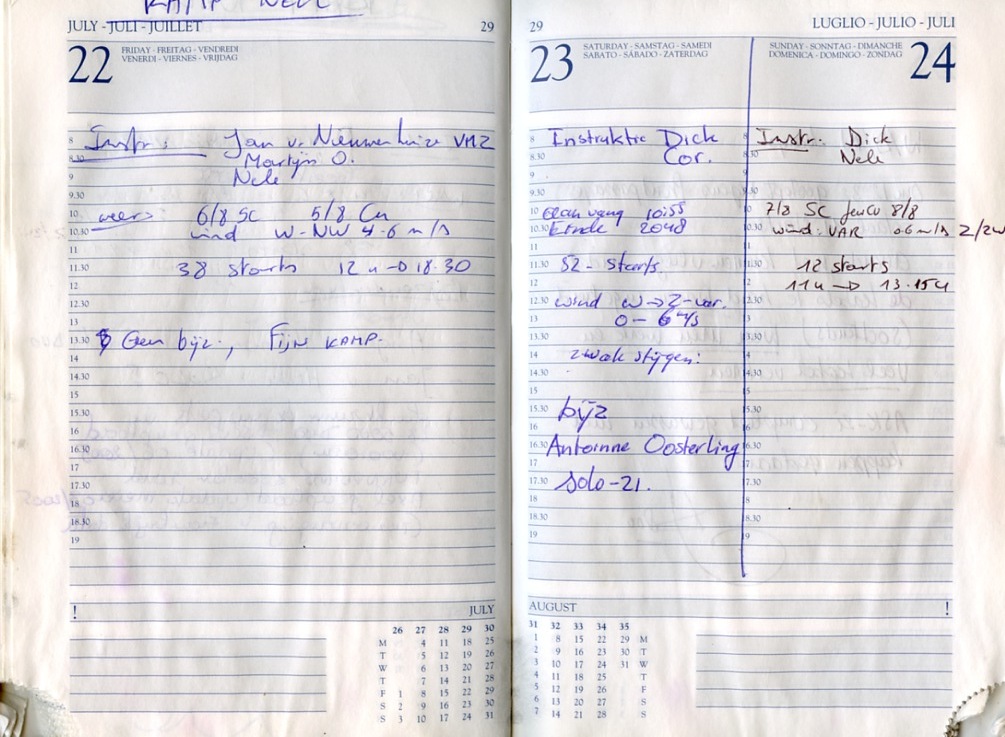 KAMP NELE
JULY - JULI - JUILLET 29
22 FRIDAY - FREITAG - VENDREDI
VENERDI - VIERNES - VRIJDAG
8 Instr: Jan v. Nieuwenhuize VM2
8.30 Martijn O.
9 Nele
9.30
10 weer: 6/8 SC 5/8 Cu
10.30 wind W-NW 4-6 m/s
11
11.30 38 starts 12 u → 18.30
12
12.30
13
13.30 Geen bijz., Fijn KAMP.
14
14.30
15
15.30
16
16.30
17
17.30
18
18.30
19
! JULY
26 27 28 29 30
M 4 11 18 25
T 5 12 19 26
W 6 13 20 27
T 7 14 21 28
F 1 8 15 22 29
S 2 9 16 23 30
S 3 10 17 24 31
29 LUGLIO - JULIO - JULI
23 SATURDAY - SAMSTAG - SAMEDI
SABATO - SÁBADO - ZATERDAG
8 Instruktie Dick
8.30 Cor.
9
9.30
10 aanvang 10:55
10.30 Einde 2048
11
11.30 52 - starts.
12
12.30 wind W → Z-var.
13 0 - 6 m/s
13.30
14 zwak stijgen.
14.30
15
15.30 bijz
16
16.30 Antoinne Oosterling
17
17.30 solo-21.
18
18.30
19
SUNDAY - SONNTAG - DIMANCHE
DOMENICA - DOMINGO - ZONDAG 24
8 Instr. Dick
8.30 Nele
9
9.30
10 7/8 SC 8/8
10.30 wind: VAR 06 m/s Z/ZW
11
11.30 12 starts
12 11u → 13.15u
12.30
13
13.30
14
14.30
15
15.30
16
16.30
17
17.30
18
18.30
19
AUGUST !
31 32 33 34 35
1 8 15 22 29 M
2 9 16 23 30 T
3 10 17 24 31 W
4 11 18 25 T
5 12 19 26 F
6 13 20 27 S
7 14 21 28 S